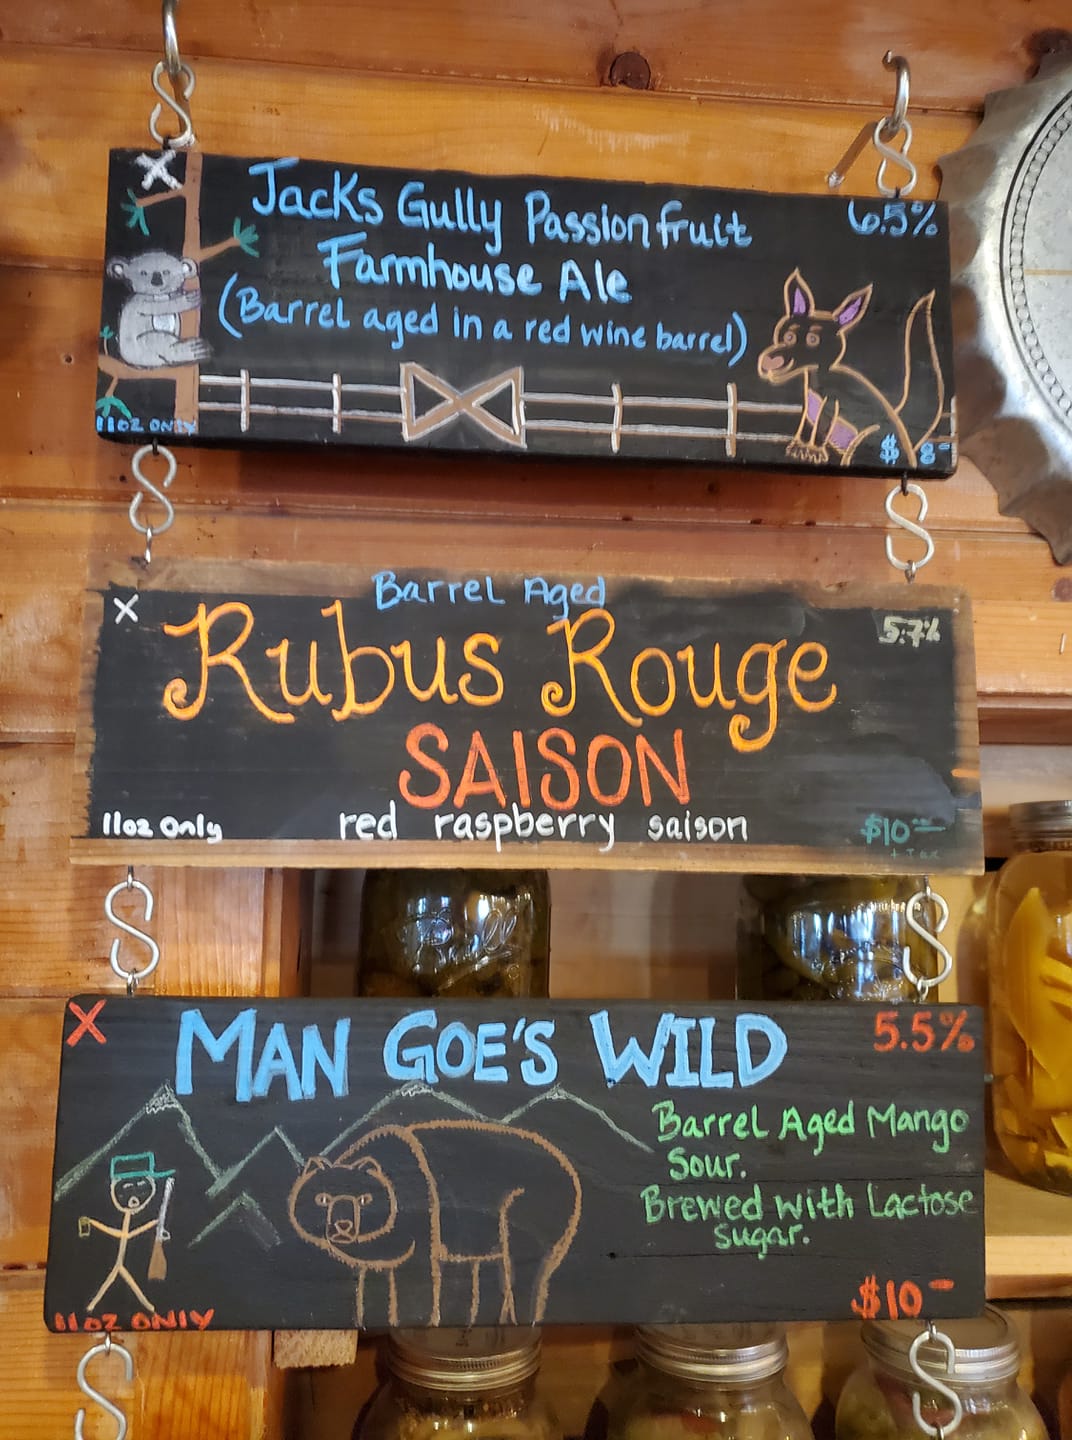 X
Jacks Gully Passionfruit
6.5%
Farmhouse Ale
(Barrel aged in a red wine barrel)
11oz ONLY
$ 8-
Barrel Aged
X
Rubus Rouge
5.7%
SAISON
11oz Only
red raspberry saison
$10-
+ Tax
X
MAN GOE'S WILD
5.5%
Barrel Aged Mango
Sour.
Brewed with Lactose
sugar.
11oz ONLY
$10-
Ball